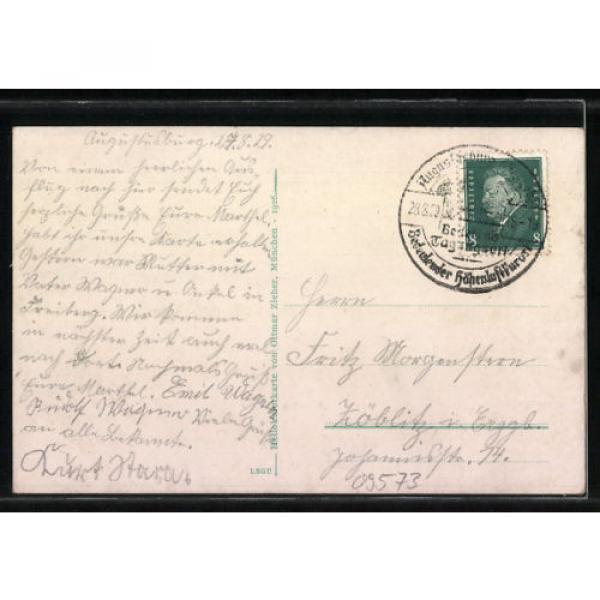 Augustusburg, 27.8.29.
Von einem herrlichen Aus-
flug nach hier sendet Euch
herzliche Grüße Eure Marthel.
habt ihr unsre Karte erhalten
Gestern war Mutter mit
Vater Wagner u Onkel in
Freiberg. Wir kommen
in nächster Zeit auch mal
nach dort. Nochmals Gruß
Eure Marthel. Emil Wagner
Rudolf Wagner Viele Grüße
an alle Bekannte.
Kurt
Helio-Color-Karte von Ottmar Zieher, München - 1926
LSGU
Augustusburg
28.8.29
Bedeutender Höhenluftkurort
8
Herrn
Fritz Morgenstern
Zöblitz i. Erzgb.
Johannisstr. 14.
09573